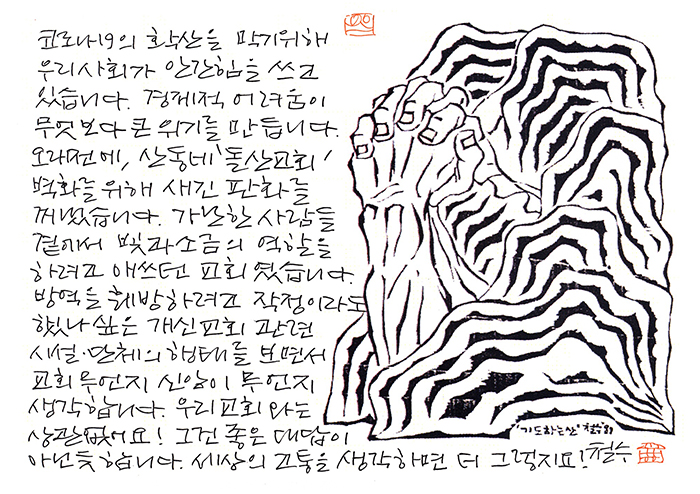 코로나19의 확산을 막기위해
우리사회가 안간힘을 쓰고
있습니다. 경제적 어려움이
무엇보다 큰 위기를 만듭니다.
오래전에, 산동네 '돌산교회'
벽화를 위해 새긴 판화를
꺼냈습니다. 가난한 사람들
곁에서 빛과소금의 역할을
하려고 애쓰던 교회였습니다.
방역을 훼방하려고 작정이라도
했나 싶은 개신교회 관련
시설·단체의 행태를 보면서
교회 무언지 신앙이 무언지
생각합니다. 우리교회와는
상관없어요! 그건 좋은 대답이
아닌듯 합니다. 세상의 고통을 생각하면 더 그렇지요! 철수
'기도하는 산'